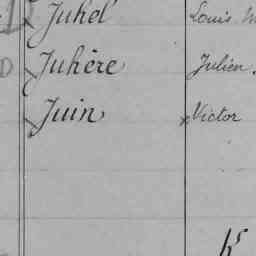 Juhel Louis
Juhère Julien
Juin Victor